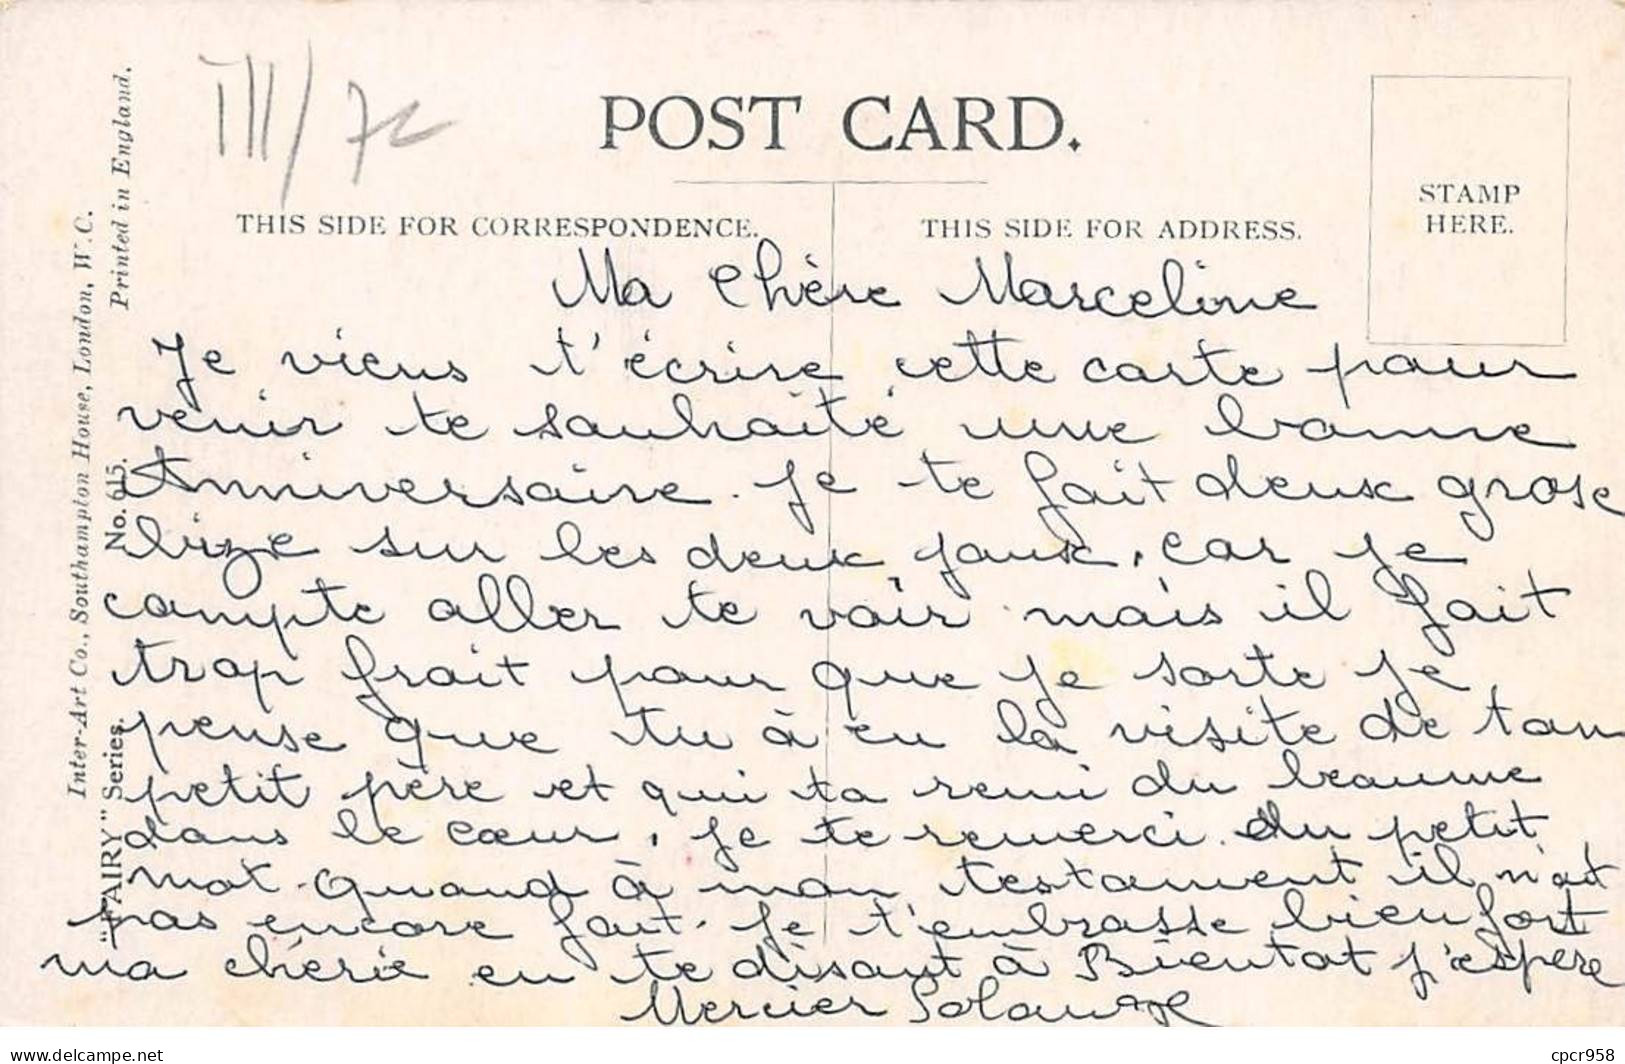 III/7c
POST CARD.
THIS SIDE FOR CORRESPONDENCE.
THIS SIDE FOR ADDRESS.
STAMP
HERE.
Inter-Art Co., Southampton House, London, W.C.
Printed in England.
"FAIRY" Series. No. 615.
Ma Chère Marceline
Je viens t'écrire cette carte pour
venir te souhaité une bonne
Anniversaire. Je te fait deux grose
bize sur les deux joux, car je
compte aller te voir mais il fait
trop frait pour que je sorte je
pense que tu à eu la visite de ton
petit père et qui ta remi du beaume
dans le cœur, je te remerci du petit
mot. quand à mon testament il n'ait
pas encore fait. Je t'embrasse bien fort
ma chérie en te disant à Bientot j'espère
Mercier Solange
delcampe.net
cpcr958